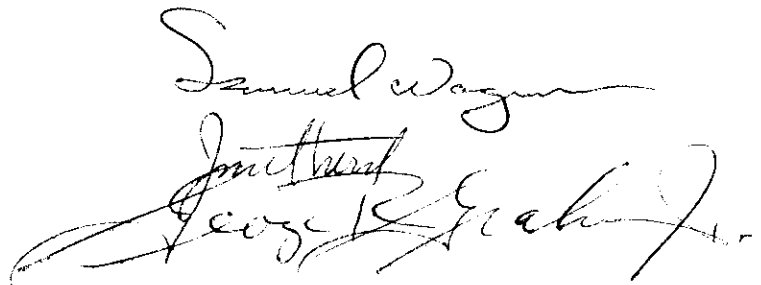 Samuel Wagner
George R. Graham Jr.